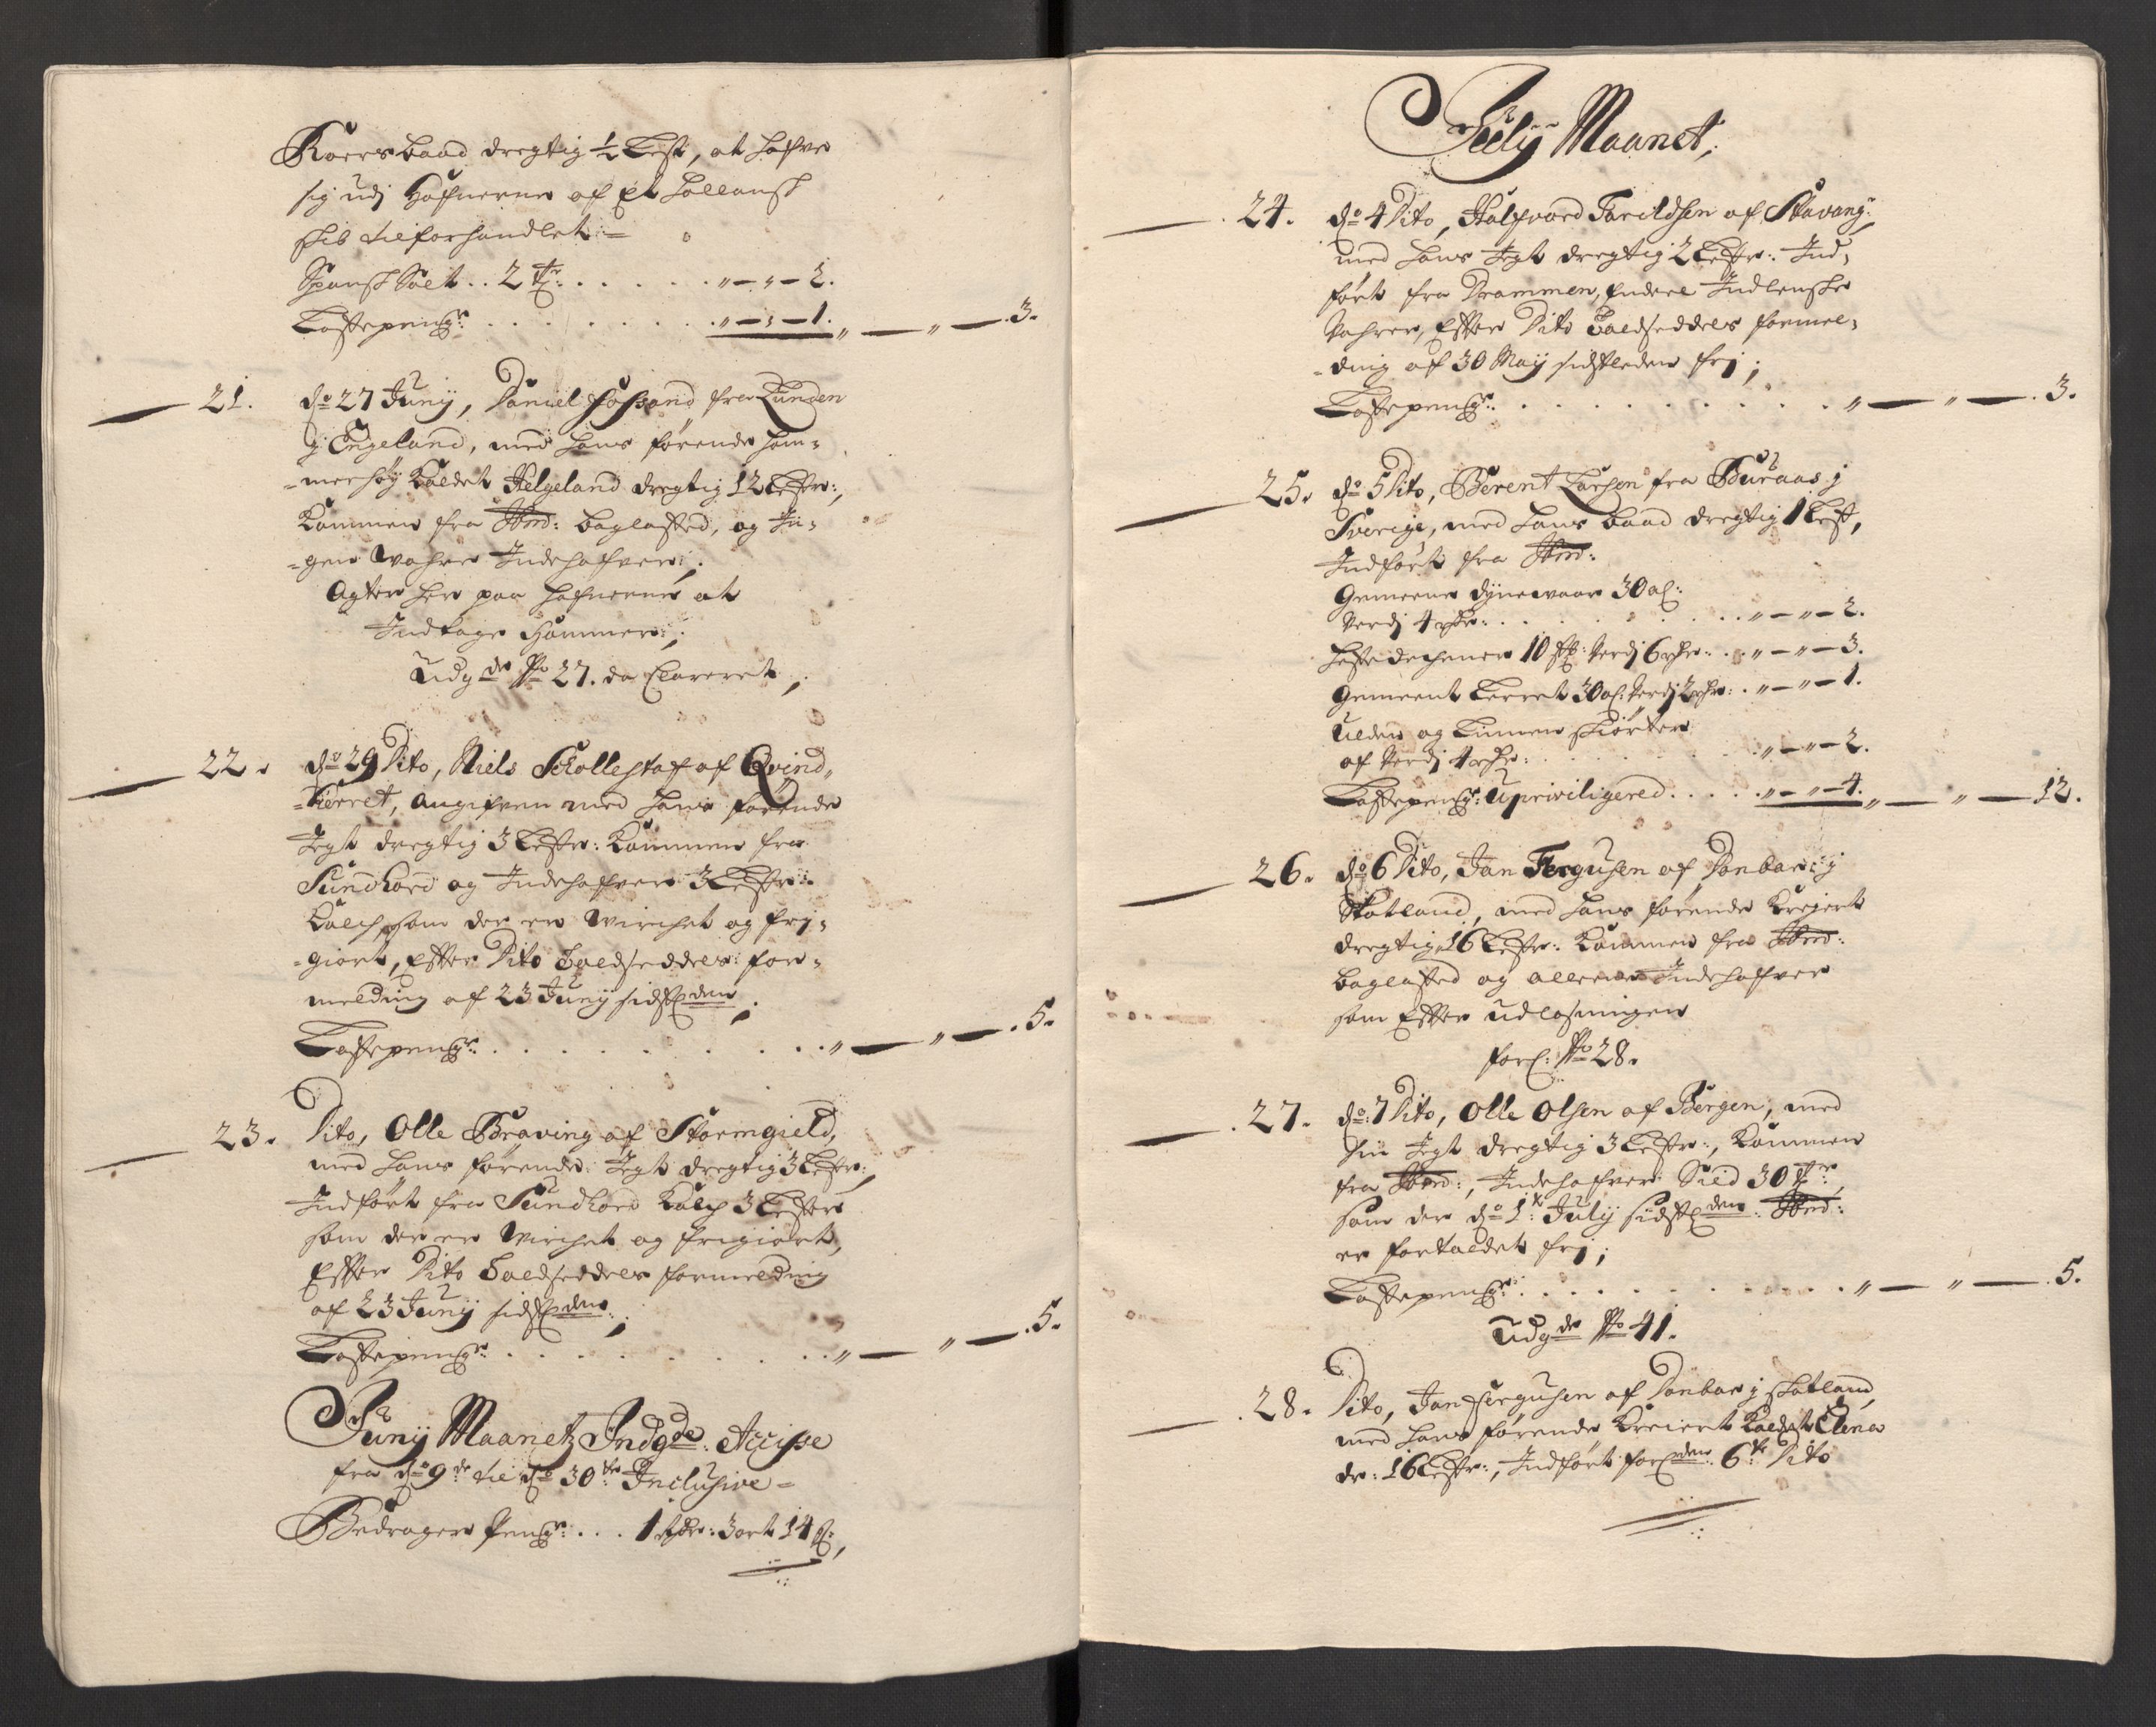 Roersbaad dregtig ½ Lest, at hafve
sig udj Hafnerne af et Hollansk
skib tilforhandlet
Spansk Salt .. 2 tr: . . . . . „ — „ — 2.
Lastepenge: . . . . . . „ — „ — 1. „ — „ — 3.
21. dō 27 Junÿ, Daniel fra Lunden
j Engeland, med hans førende Hom-
-mershøÿ Kaldet Helgeland dregtig 12 Lester:,
Kommen fra baglasted, og In-
-gen Wahre Indehafver;
Agter her paa hafnerne at
Indtage Hommer;
Udgde No 27. da Clareret,
22. dō 29 Dito, Niels Schollestaf af Qvind,
-hierret, angifven med hans førende
Jegt dregtig 3 Lester: Kommen fra
Sundhord og Indehafver 3 Lester:
Kalch, som der er Wirchet og frj-
-giort, Efter Dito Toldseddels for-
melding af 23 Junÿ sidstden;
Lastepenge: . . . . . . . „ — „ — 5.
23. Dito, Olle Braving af Stormgield,
med hans førende Jegt dregtig 3 Lester:,
Indført fra Sundhord Kalch 3 Lester
som der er Wirchet og frigiort,
Efter Dito Toldseddels formelding
af 23 Junÿ sidstden;
Lastepenge: . . . . . . . „ — „ — 5.
Junÿ Maanetz Indgde: Accisse
fra dō 9de til dō 30te Inclusive =
Bedrager Penge: . . . 1 rdr: 3 ort 14 s:,
Julÿ Maanet,
24. dō 4 Dito, Halfvord Tarildsen af Stavang:
med hans Jegt dregtig 2 Lester: Ind-
ført fra Drammen, Endeel Indlenske
Vahrer, Efter Dito Toldseddels formel-
-ding af 30 Maÿ sidstleden frj;
Lastepenge: . . . . . . . „ — „ — 3.
25. dō 5 Dito, Berent Larsen fra Buraas j
Sverige, med hans baad dregtig 1 Lest,
Indført fra
Gemeene dÿnewaar 30 al:
Verdj 4 rdr: . . . . . . „ — „ — 2.
Hestedechener 10 stk: Verdj 6 rdr: . . „ — „ — 3.
Gemeent Lerret 30 al: Verdj 2 rdr: . „ — „ — 1.
Ulden og Linnen skiørter
af Verdj 4 rdr: . . . . . „ — „ — 2.
Lastepenge: Upriviligered . . . . „ — „ — 4. „ — „ — 12.
26. dō 6 Dito, Jan Fergusen af Donbar j
Skotland, med hans førende Kreÿert
dregtig 16 Lester: Kommen fra
baglasted og alleene Indehafver
som Efter udlosningen
forc: No 28.
27. dō 7 Dito, Olle Olsen af Bergen, med
sin Jegt dregtig 3 Lester:, Kommen
fra Indehafver Sild 30 tr:,
som der dō 1te Julÿ sidstden
er fortoldet frj;
Lastepenge: . . . . . . . „ — „ — 5.
Udgde No 41.
28. Dito, Jan Fergusen af Donbar j skotland,
med hans førende Kreiert Kaldet Elena
dr: 16 Lester:, Indført forden 6te Dito